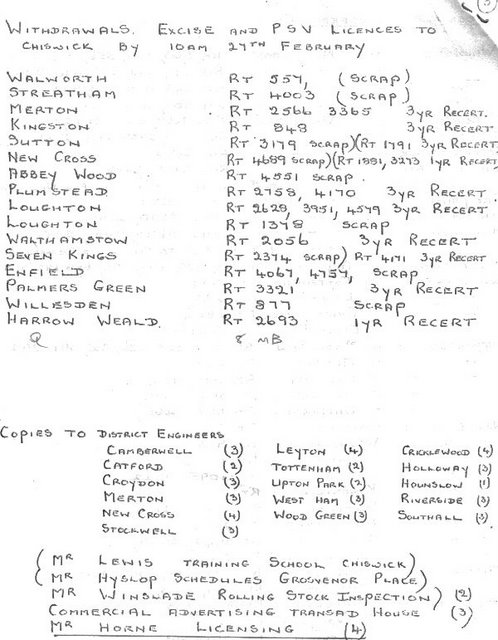 WITHDRAWALS. EXCISE AND PSV LICENCES TO
CHISWICK BY 10AM 27TH FEBRUARY
WALWORTH RT 557, (SCRAP)
STREATHAM RT 4003 (SCRAP)
MERTON RT 2566 3365 3YR RECERT.
KINGSTON RT 848 3YR RECERT
SUTTON RT 3179 SCRAP)(RT 1791 3YR RECERT
NEW CROSS RT 4689 SCRAP)(RT 1881, 3273 1YR RECERT
ABBEY WOOD RT 4551 SCRAP.
PLUMSTEAD RT 2758, 4170 3YR RECERT.
LOUGHTON RT 2628, 3951, 4579 3YR RECERT.
LOUGHTON RT 1378 SCRAP
WALTHAMSTOW RT 2056 3YR RECERT
SEVEN KINGS RT 2374 SCRAP) RT 4171 3YR RECERT
ENFIELD RT 4067, 4757, SCRAP
PALMERS GREEN RT 3321 3YR RECERT
WILLESDEN RT 877 SCRAP
HARROW WEALD. RT 2693 1YR RECERT
Q 8 MB
COPIES TO DISTRICT ENGINEERS
CAMBERWELL (3) LEYTON (4) CRICKLEWOOD (4)
CATFORD (2) TOTTENHAM (2) HOLLOWAY (3)
CROYDON (3) UPTON PARK (2) HOUNSLOW (1)
MERTON (3) WEST HAM (3) RIVERSIDE (3)
NEW CROSS (4) WOOD GREEN (3) SOUTHALL (3)
STOCKWELL (3)
(MR LEWIS TRAINING SCHOOL CHISWICK)
(MR HYSLOP SCHEDULES GROSVENOR PLACE)
MR WINSLADE ROLLING STOCK INSPECTION) (2)
COMMERCIAL ADVERTISING TRANSAD HOUSE (3)
MR HORNE LICENSING (4)